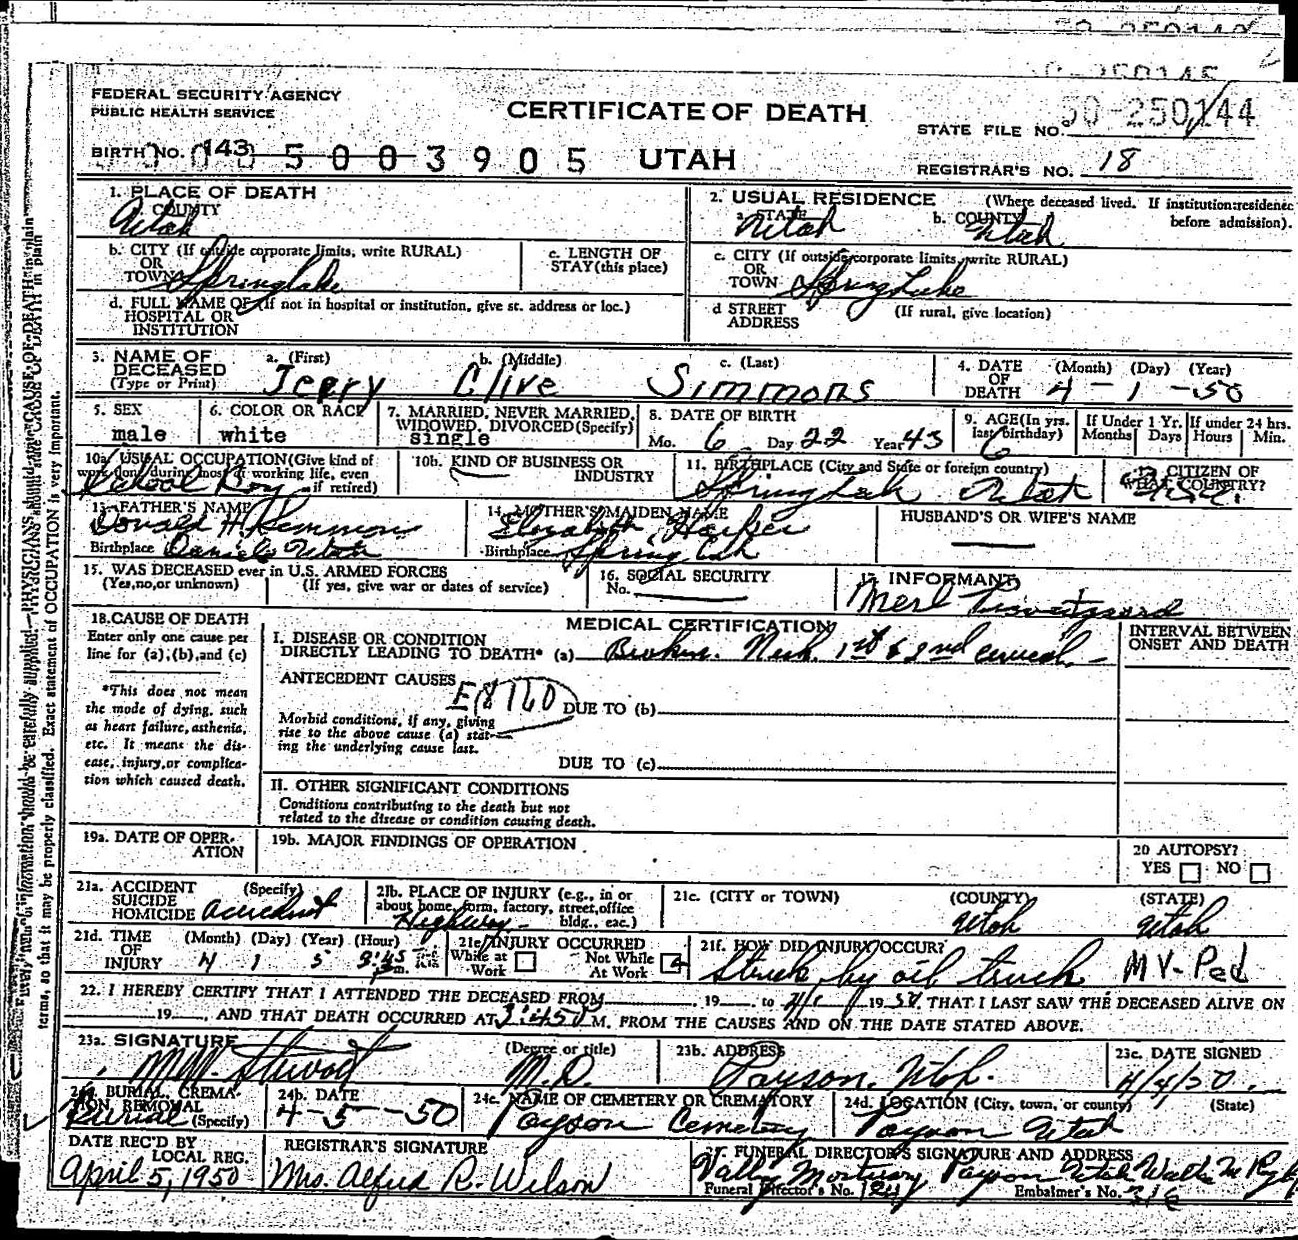 50-250145
FEDERAL SECURITY AGENCY
PUBLIC HEALTH SERVICE
CERTIFICATE OF DEATH
STATE FILE NO. 50-250144
BIRTH NO. 143
5003905 UTAH
REGISTRAR'S NO. 18
1. PLACE OF DEATH
a. COUNTY
Utah
2. USUAL RESIDENCE (Where deceased lived. If institution: residence before admission).
a. STATE Utah b. COUNTY Utah
b. CITY (If outside corporate limits, write RURAL)
OR
TOWN Springlake
c. LENGTH OF
STAY (this place)
c. CITY (If outside corporate limits, write RURAL)
OR
TOWN Spring Lake
d. FULL NAME OF (If not in hospital or institution, give st. address or loc.)
HOSPITAL OR
INSTITUTION
d STREET (If rural, give location)
ADDRESS
3. NAME OF
DECEASED
(Type or Print)
a. (First) b. (Middle) c. (Last)
Jerry Clive Simmons
4. DATE (Month) (Day) (Year)
OF
DEATH 4-1-50
5. SEX
male
6. COLOR OR RACE
white
7. MARRIED, NEVER MARRIED,
WIDOWED, DIVORCED (Specify)
single
8. DATE OF BIRTH
Mo. 6 Day 22 Year 43
9. AGE (In yrs.
last birthday)
6
If Under 1 Yr.
Months Days
If under 24 hrs.
Hours Min.
10a. USUAL OCCUPATION (Give kind of
work done during most of working life, even
if retired)
School Boy
10b. KIND OF BUSINESS OR
INDUSTRY
11. BIRTHPLACE (City and State or foreign country)
Spring Lake Utah
12. CITIZEN OF
WHAT COUNTRY?
13. FATHER'S NAME
Donald H. Simmons
Birthplace Daniels Utah
14. MOTHER'S MAIDEN NAME
Elizabeth
Birthplace Spring
HUSBAND'S OR WIFE'S NAME
15. WAS DECEASED ever in U.S. ARMED FORCES
(Yes, no, or unknown) (If yes, give war or dates of service)
16. SOCIAL SECURITY
No.
17. INFORMANT
Merl
18. CAUSE OF DEATH
Enter only one cause per
line for (a), (b), and (c)
*This does not mean
the mode of dying, such
as heart failure, asthenia,
etc. It means the dis-
ease, injury, or complica-
tion which caused death.
MEDICAL CERTIFICATION
INTERVAL BETWEEN
ONSET AND DEATH
I. DISEASE OR CONDITION
DIRECTLY LEADING TO DEATH* (a) Broken Neck. 1st & 2nd cervical.
ANTECEDENT CAUSES
E8160
DUE TO (b)
Morbid conditions, if any, giving
rise to the above cause (a) stat-
ing the underlying cause last.
DUE TO (c)
II. OTHER SIGNIFICANT CONDITIONS
Conditions contributing to the death but not
related to the disease or condition causing death.
19a. DATE OF OPER-
ATION
19b. MAJOR FINDINGS OF OPERATION
20 AUTOPSY?
YES NO
21a. ACCIDENT (Specify)
SUICIDE
HOMICIDE accident
21b. PLACE OF INJURY (e.g., in or
about home, farm, factory, street, office
bldg., etc.)
Highway
21c. (CITY or TOWN) (COUNTY) (STATE)
Utah Utah
21d. TIME (Month) (Day) (Year) (Hour)
OF
INJURY 4 1 5 3:45 m.
21e. INJURY OCCURRED
While at Work
Not While At Work
21f. HOW DID INJURY OCCUR?
Struck by oil truck MV-Ped
22. I HEREBY CERTIFY THAT I ATTENDED THE DECEASED FROM 19 to 4/1 1950 THAT I LAST SAW THE DECEASED ALIVE ON
19 , AND THAT DEATH OCCURRED AT 3:45P M. FROM THE CAUSES AND ON THE DATE STATED ABOVE.
23a. SIGNATURE (Degree or title)
M.D.
23b. ADDRESS
Payson, Utah.
23c. DATE SIGNED
4/4/50.
24a. BURIAL, CREMA-
TION, REMOVAL
(Specify)
Burial
24b. DATE
4-5-50
24c. NAME OF CEMETERY OR CREMATORY
Payson Cemetery
24d. LOCATION (City, town, or county) (State)
Payson Utah
DATE REC'D BY
LOCAL REG.
April 5, 1950
REGISTRAR'S SIGNATURE
Mrs. Alfred R. Wilson
FUNERAL DIRECTOR'S SIGNATURE AND ADDRESS
Valley Mortuary Payson Utah
Funeral Director's No. Embalmer's No. 316